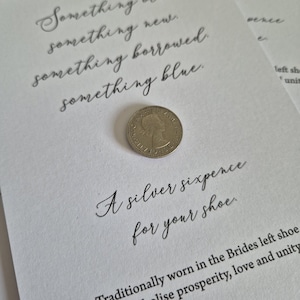 Something
something new.
something borrowed.
something blue.
A silver sixpence
for your shoe.
Traditionally worn in the Brides left shoe
prosperity, love and unity
pence
left sh
unit